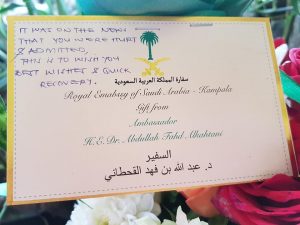 IT WAS ON THE NEWS
THAT YOU WERE HURT
& ADMITTED,
THIS IS TO WISH YOU
BEST WISHES & QUICK
RECOVERY.
سفارة المملكة العربية السعودية
Royal Embassy of Saudi Arabia - Kampala
Gift from
Ambassador
H.E. Dr. Abdullah Fahd Alkahtani
السفير
د. عبد الله بن فهد القحطاني